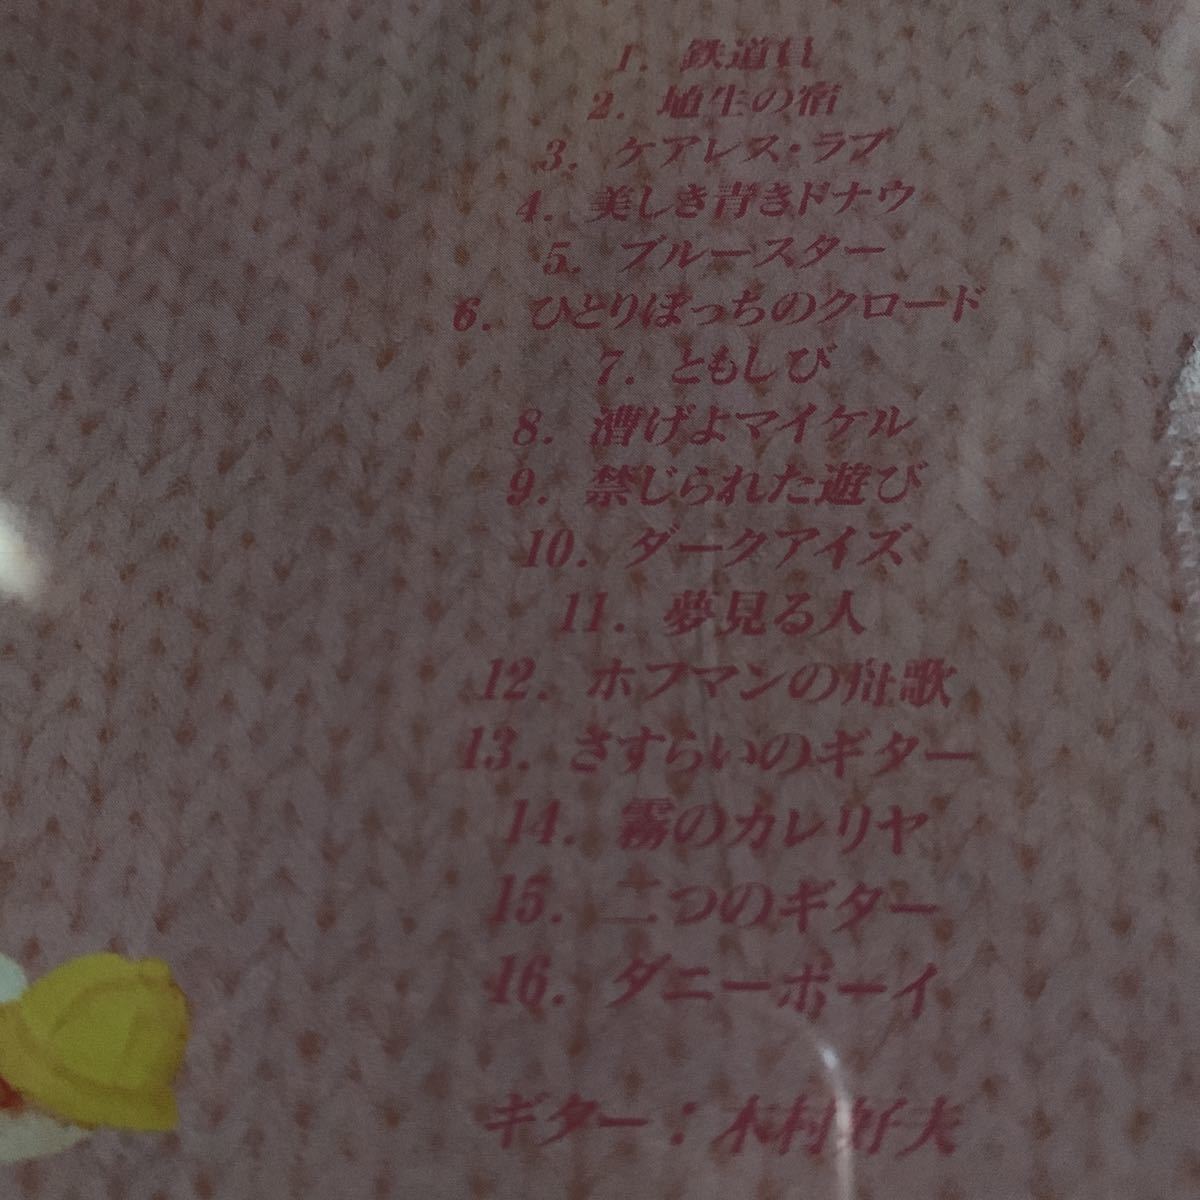 1. 鉄道員
2. 埴生の宿
3. ケアレス・ラブ
4. 美しき青きドナウ
5. ブルースター
6. ひとりぼっちのクロード
7. ともしび
8. 漕げよマイケル
9. 禁じられた遊び
10. ダークアイズ
11. 夢見る人
12. ホフマンの舟歌
13. さすらいのギター
14. 霧のカレリヤ
15. 二つのギター
16. ダニーボーイ
ギター：木村好夫